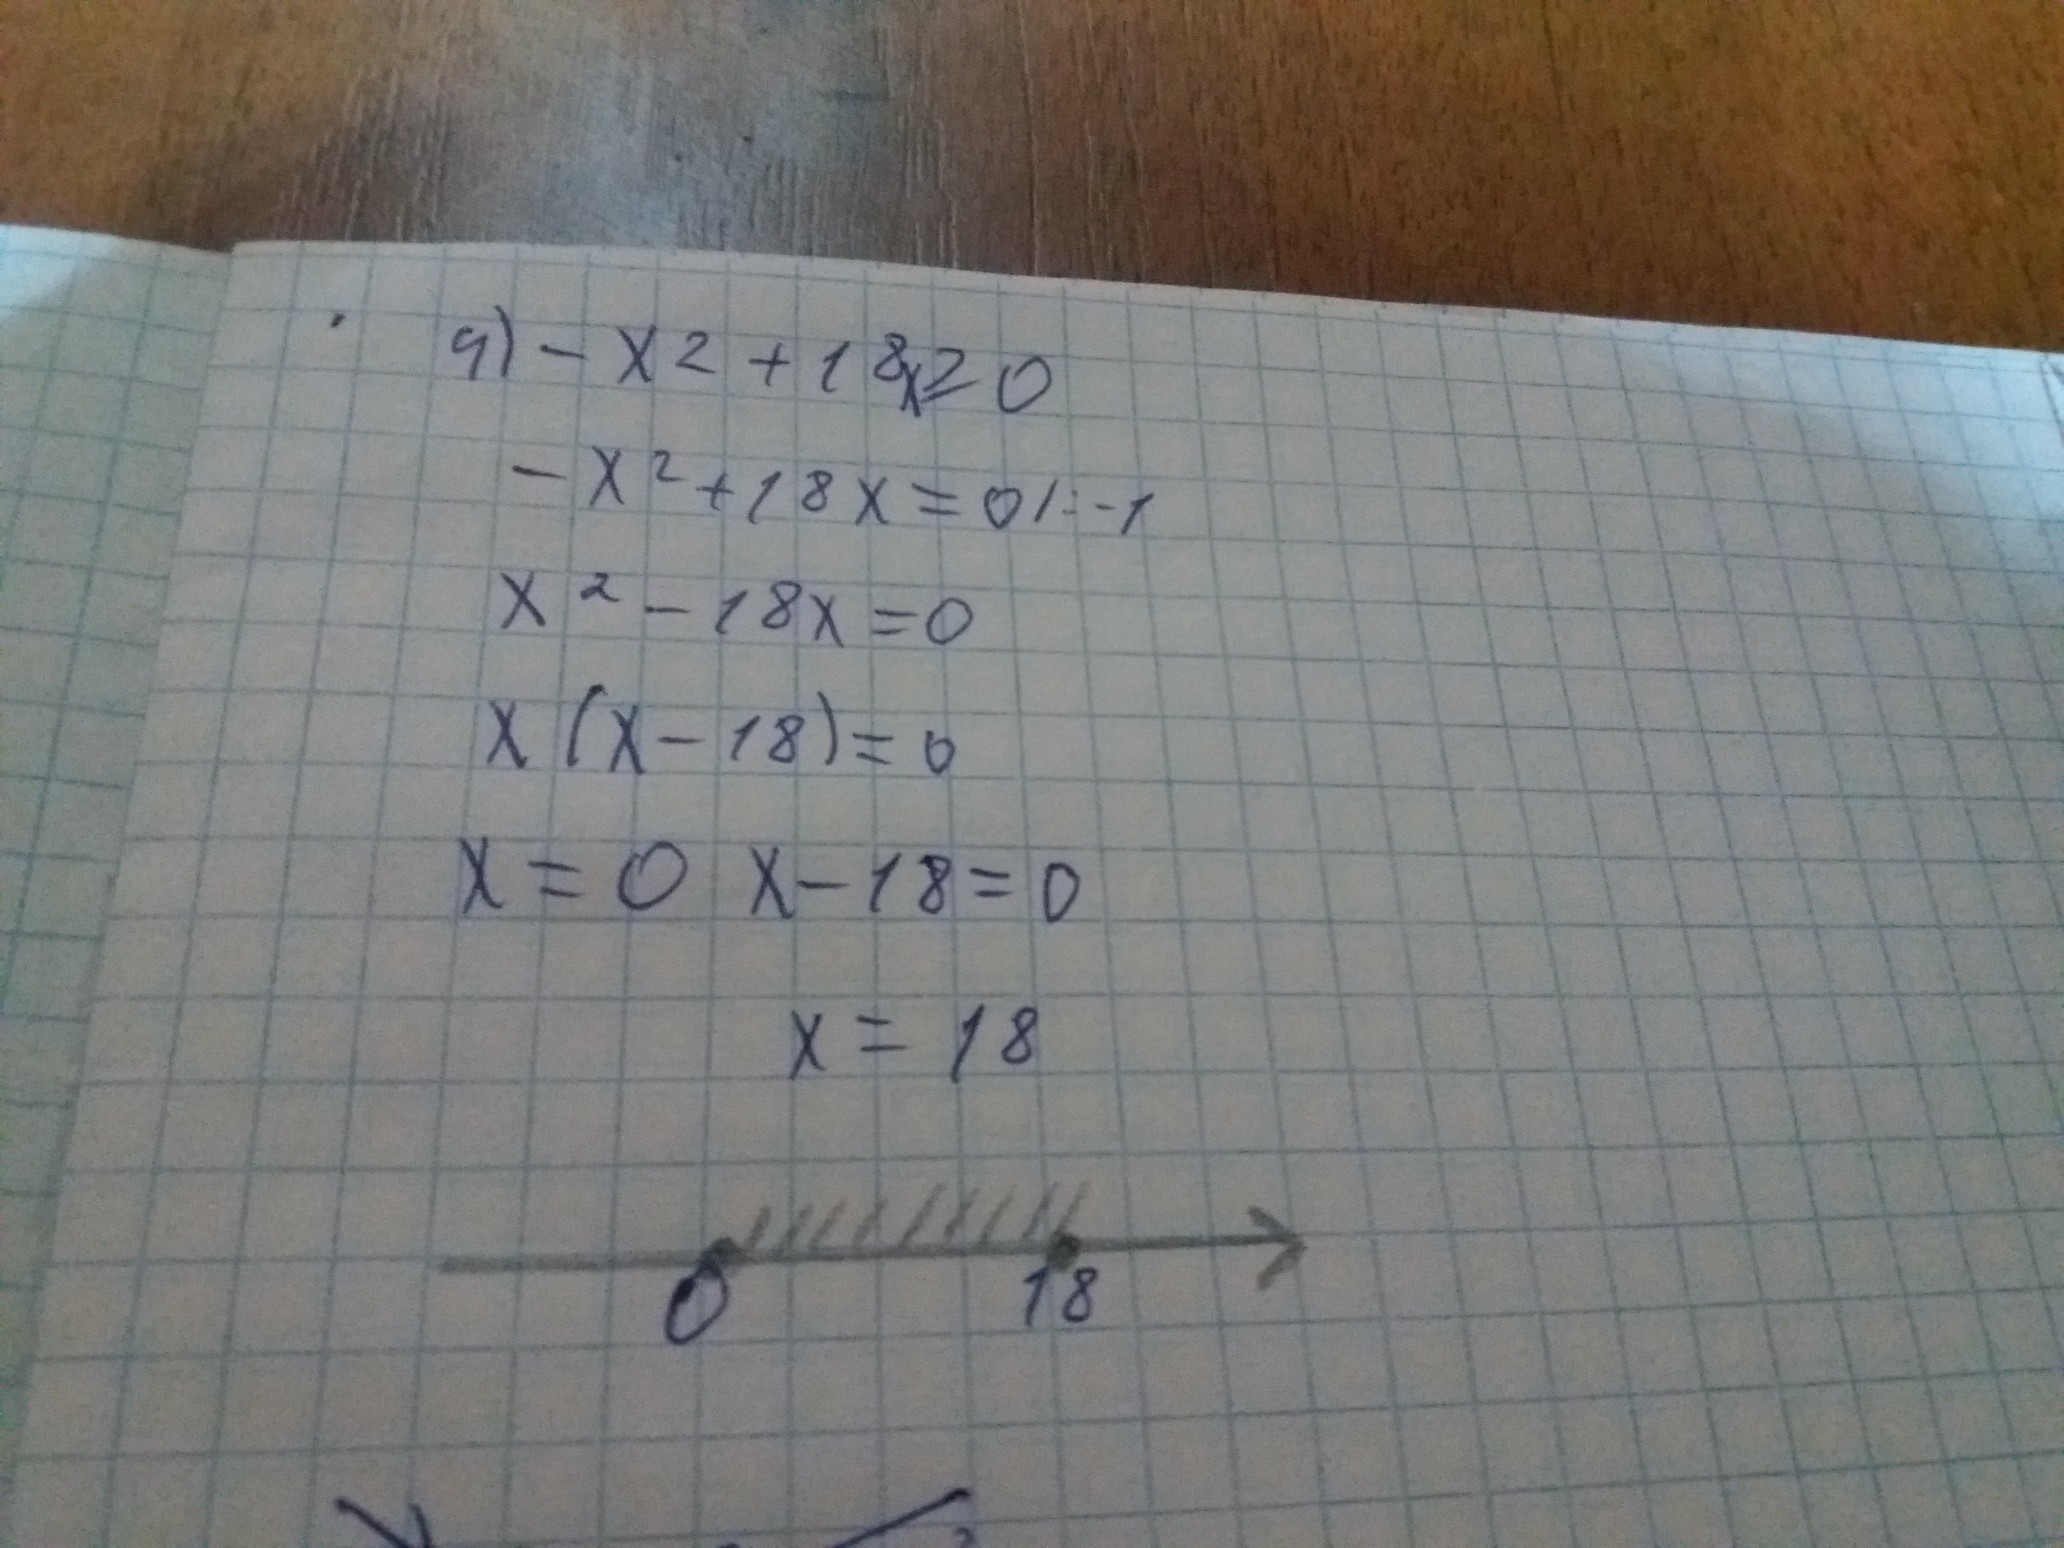 9) - x2 + 18x ≥ 0
- x² + 18x = 0 | : -1
x² - 18x = 0
x (x - 18) = 0
x = 0 x - 18 = 0
x = 18
0 18